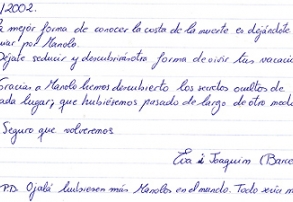 /2002.
a mejor forma de conocer la costa de la muerte es dejándote
uiar por Manolo.
Déjate seducir y descubrirás otra forma de vivir tus vacacio
Gracias a Manolo hemos descubierto los secretos ocultos de
ada lugar, que hubiésemos pasado de largo de otro modo
Seguro que volveremos
Eva i Joaquim (Barce
P.D. Ojalá hubiesen más Manolos en el mundo. Todo sería m